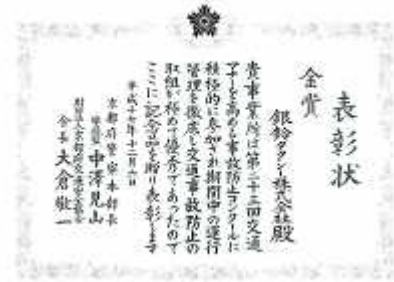 表彰状
金賞
銀鈴タクシー株式会社殿
貴事業所は第二十三回交通
マナーを高める事故防止コンクールに
積極的に参加され期間中の運行
管理を徹底し交通事故防止の
取組が極めて優秀であったので
ここに記念品を贈り表彰します
平成十七年十二月六日
京都府警察本部長
中澤見山
会長 大倉敬一